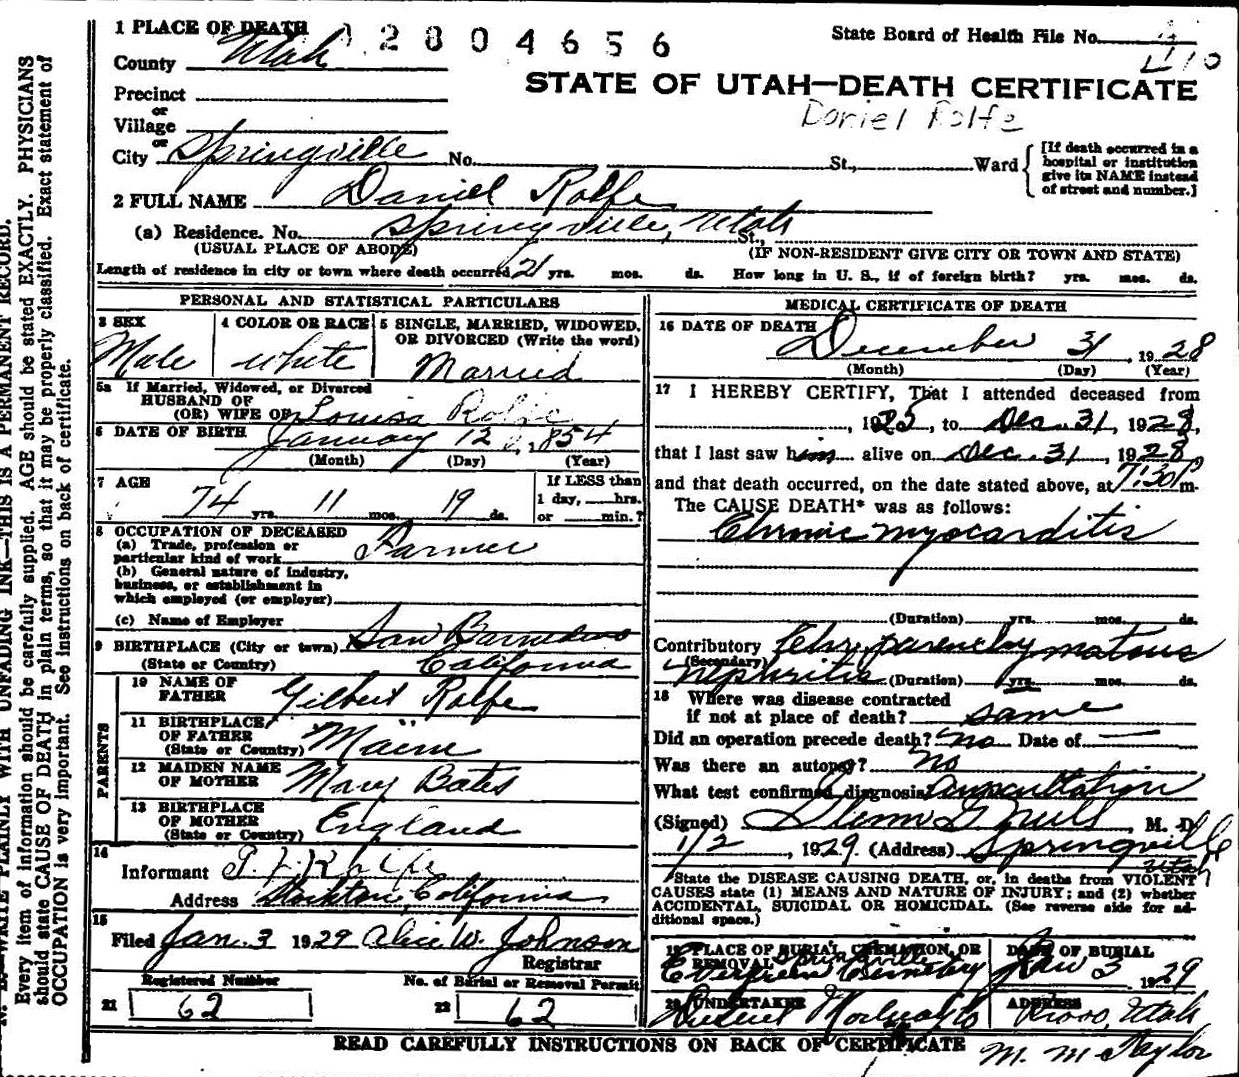 1 PLACE OF DEATH
12804656
State Board of Health File No.
County Utah
STATE OF UTAH—DEATH CERTIFICATE
Precinct
or
Village
Daniel Rolfe
or
City Springville No. St., Ward
[If death occurred in a
hospital or institution
give its NAME instead
of street and number.]
2 FULL NAME Daniel Rolfe
(a) Residence. No. Springville, Utah St.,
(USUAL PLACE OF ABODE) (IF NON-RESIDENT GIVE CITY OR TOWN AND STATE)
Length of residence in city or town where death occurred 21 yrs. mos. ds. How long in U. S., if of foreign birth? yrs. mos. ds.
PERSONAL AND STATISTICAL PARTICULARS
3 SEX 4 COLOR OR RACE 5 SINGLE, MARRIED, WIDOWED,
OR DIVORCED (Write the word)
Male white Married
5a If Married, Widowed, or Divorced
HUSBAND OF
(OR) WIFE OF Louisa Rolfe
6 DATE OF BIRTH January 12, 1854
(Month) (Day) (Year)
7 AGE
74 yrs. 11 mos. 19 ds.
If LESS than
1 day, hrs.
or min.?
8 OCCUPATION OF DECEASED
(a) Trade, profession or
particular kind of work Farmer
(b) General nature of industry,
business, or establishment in
which employed (or employer)
(c) Name of Employer
9 BIRTHPLACE (City or town) San Barnedino
(State or Country) California
PARENTS
10 NAME OF
FATHER Gilbert Rolfe
11 BIRTHPLACE
OF FATHER
(State or Country) Maine
12 MAIDEN NAME
OF MOTHER Mary Bates
13 BIRTHPLACE
OF MOTHER
(State or Country) England
14
Informant
Address Stockton, California
15
Filed Jan. 3 1929 Alice W. Johnson
Registrar
Registered Number No. of Burial or Removal Permit
21 62 22 62
MEDICAL CERTIFICATE OF DEATH
16 DATE OF DEATH
December 31, 1928
(Month) (Day) (Year)
17 I HEREBY CERTIFY, That I attended deceased from
, 1925, to Dec. 31, 1928,
that I last saw him alive on Dec. 31, 1928
and that death occurred, on the date stated above, at 7:30 P m.
The CAUSE DEATH* was as follows:
Chronic myocarditis
(Duration) yrs. mos. ds.
Contributory Chr. parenchymatous
(Secondary)
nephritis (Duration) yrs. mos. ds.
18 Where was disease contracted
if not at place of death? same
Did an operation precede death? no Date of —
Was there an autopsy? no
What test confirmed diagnosis auscultation
(Signed) Glenn G. M. D.
1/2, 1929 (Address) Springville
Utah
*State the DISEASE CAUSING DEATH, or, in deaths from VIOLENT
CAUSES state (1) MEANS AND NATURE OF INJURY; and (2) whether
ACCIDENTAL, SUICIDAL OR HOMICIDAL. (See reverse side for ad-
ditional space.)
19 PLACE OF BURIAL, CREMATION, OR
REMOVAL Springville
Evergreen Cemetery
DATE OF BURIAL
Jan 3 1929
20 UNDERTAKER
ADDRESS
Provo, Utah
READ CAREFULLY INSTRUCTIONS ON BACK OF CERTIFICATE
M. McTaylor
WRITE PLAINLY WITH UNFADING INK—THIS IS A PERMANENT RECORD.
Every item of information should be carefully supplied. AGE should be stated EXACTLY. PHYSICIANS
should state CAUSE OF DEATH in plain terms, so that it may be properly classified. Exact statement of
OCCUPATION is very important. See instructions on back of certificate.